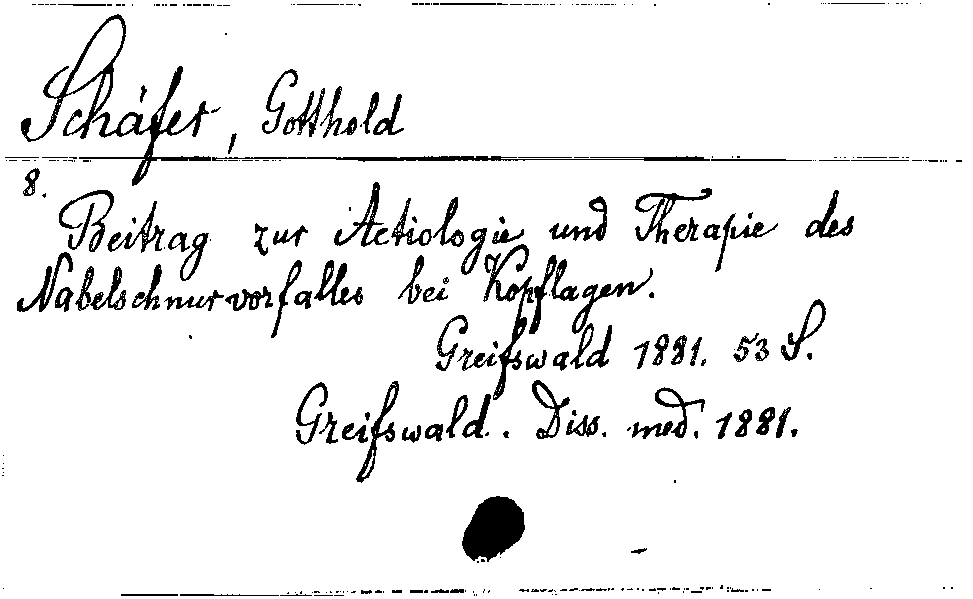 Schäfer, Gotthold
8.
Beitrag zur Aetiologie und Therapie des
Nabelschnurvorfalles bei Kopflagen.
Greifswald 1881. 53 S.
Greifswald. Diss. med. 1881.